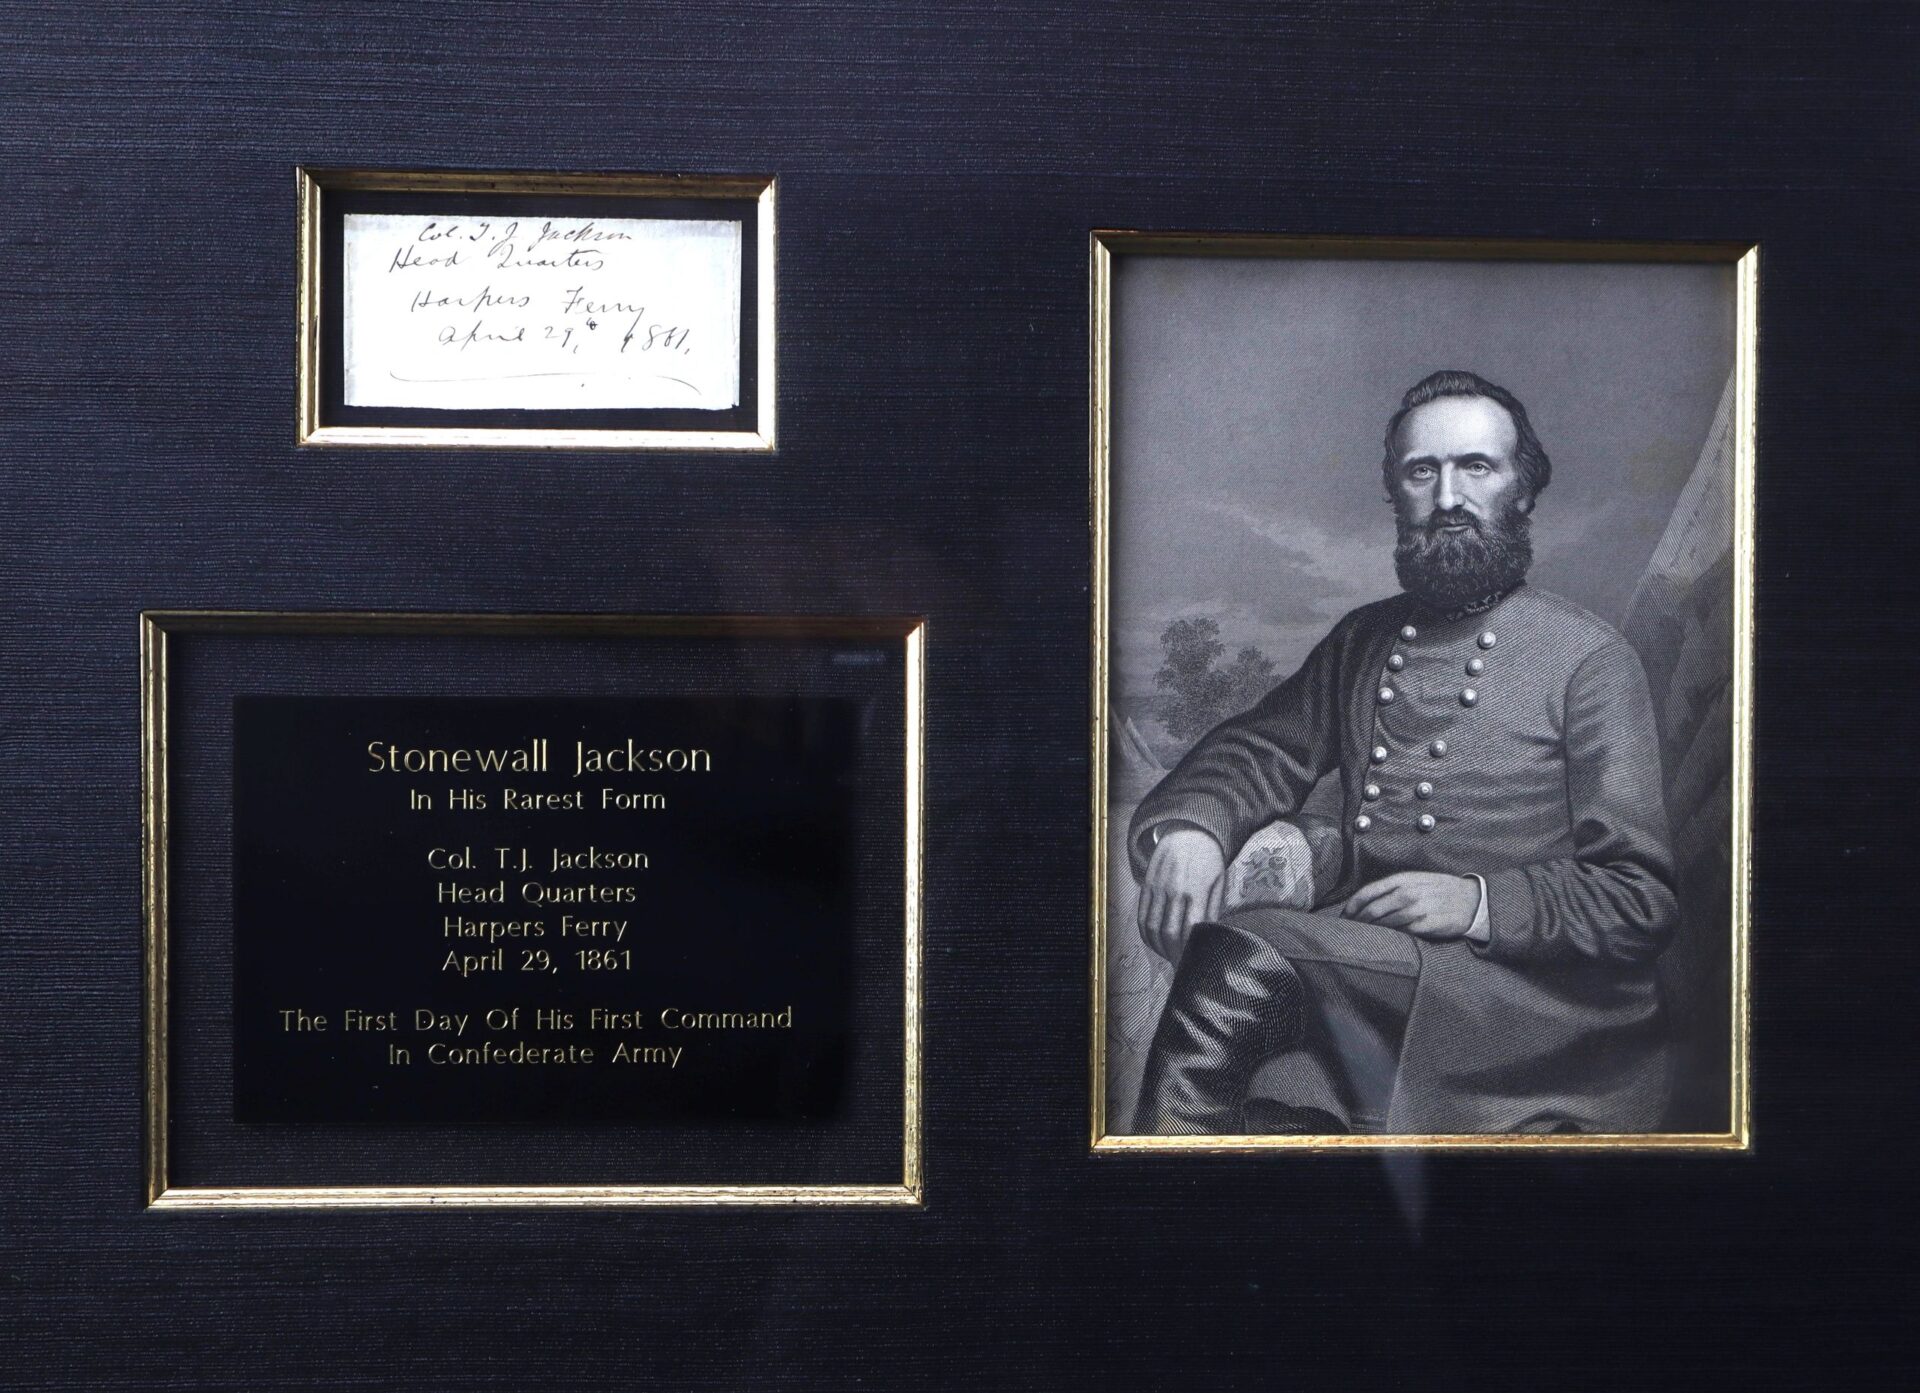 Col. T. J. Jackson
Head Quarters
Harpers Ferry
April 29th, 1861.
Stonewall Jackson
In His Rarest Form
Col. T.J. Jackson
Head Quarters
Harpers Ferry
April 29, 1861
The First Day Of His First Command
In Confederate Army